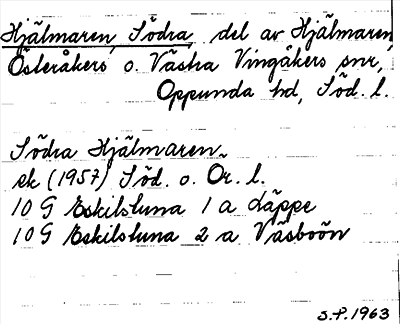 Hjälmaren, Södra, del av Hjälmaren,
Österåkers o. Västra Vingåkers snr,
Oppunda hd, Söd. l.
Södra Hjälmaren
ek (1957) Söd. o. Ör. l.
10 G Eskilstuna 1 a Läppe
10 G Eskilstuna 2 a Väsboön
S.P. 1963